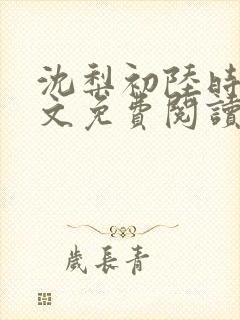 沈梨初陸時
文免費閱讀
歲長青